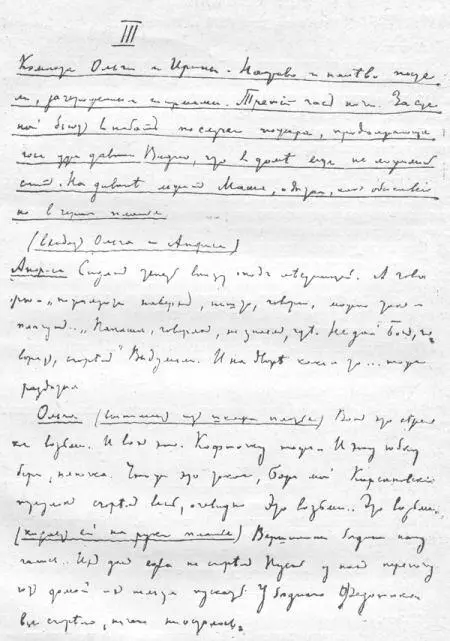 III
Комната Ольги и Ирины. Направо и налево посте-
ли, загороженныя ширмами. Третій час ночи. За сце-
ной бьют в набат по случаю пожара,
уже давно. Видно, что в доме еще не ложились
спать. На диване лежит Маша, одетая, как обыкновен-
но в черное платье
(входят Ольга и Анфиса)
Анфиса. Сидят теперь внизу под лестницей. А гово-
рю — „пожалуйте наверх, нешто, говорю, можно так —
плачут.. „Папаша, говорят, не знаем, где. Не дай Бог, го-
ворят, сгорел“ Выдумали. И на дворе какие-то... тоже
раздетые
Ольга (вынимает из шкапа платья) Вот это серень-
кое возьми. И вот это. Кофточку тоже. И эту юбку
бери, нянечка. Что же это такое, Боже мой Кирсановскій
переулок сгорел весь, очевидно Это возьми.. Это возьми.
(кидает ей на руки платье) Вершинины бедные напу-
гались.. Их дом едва не сгорел Пусть у нас переночу
ют домой их нельзя пускать У бедного Федотика
все сгорело, ничего не осталось.